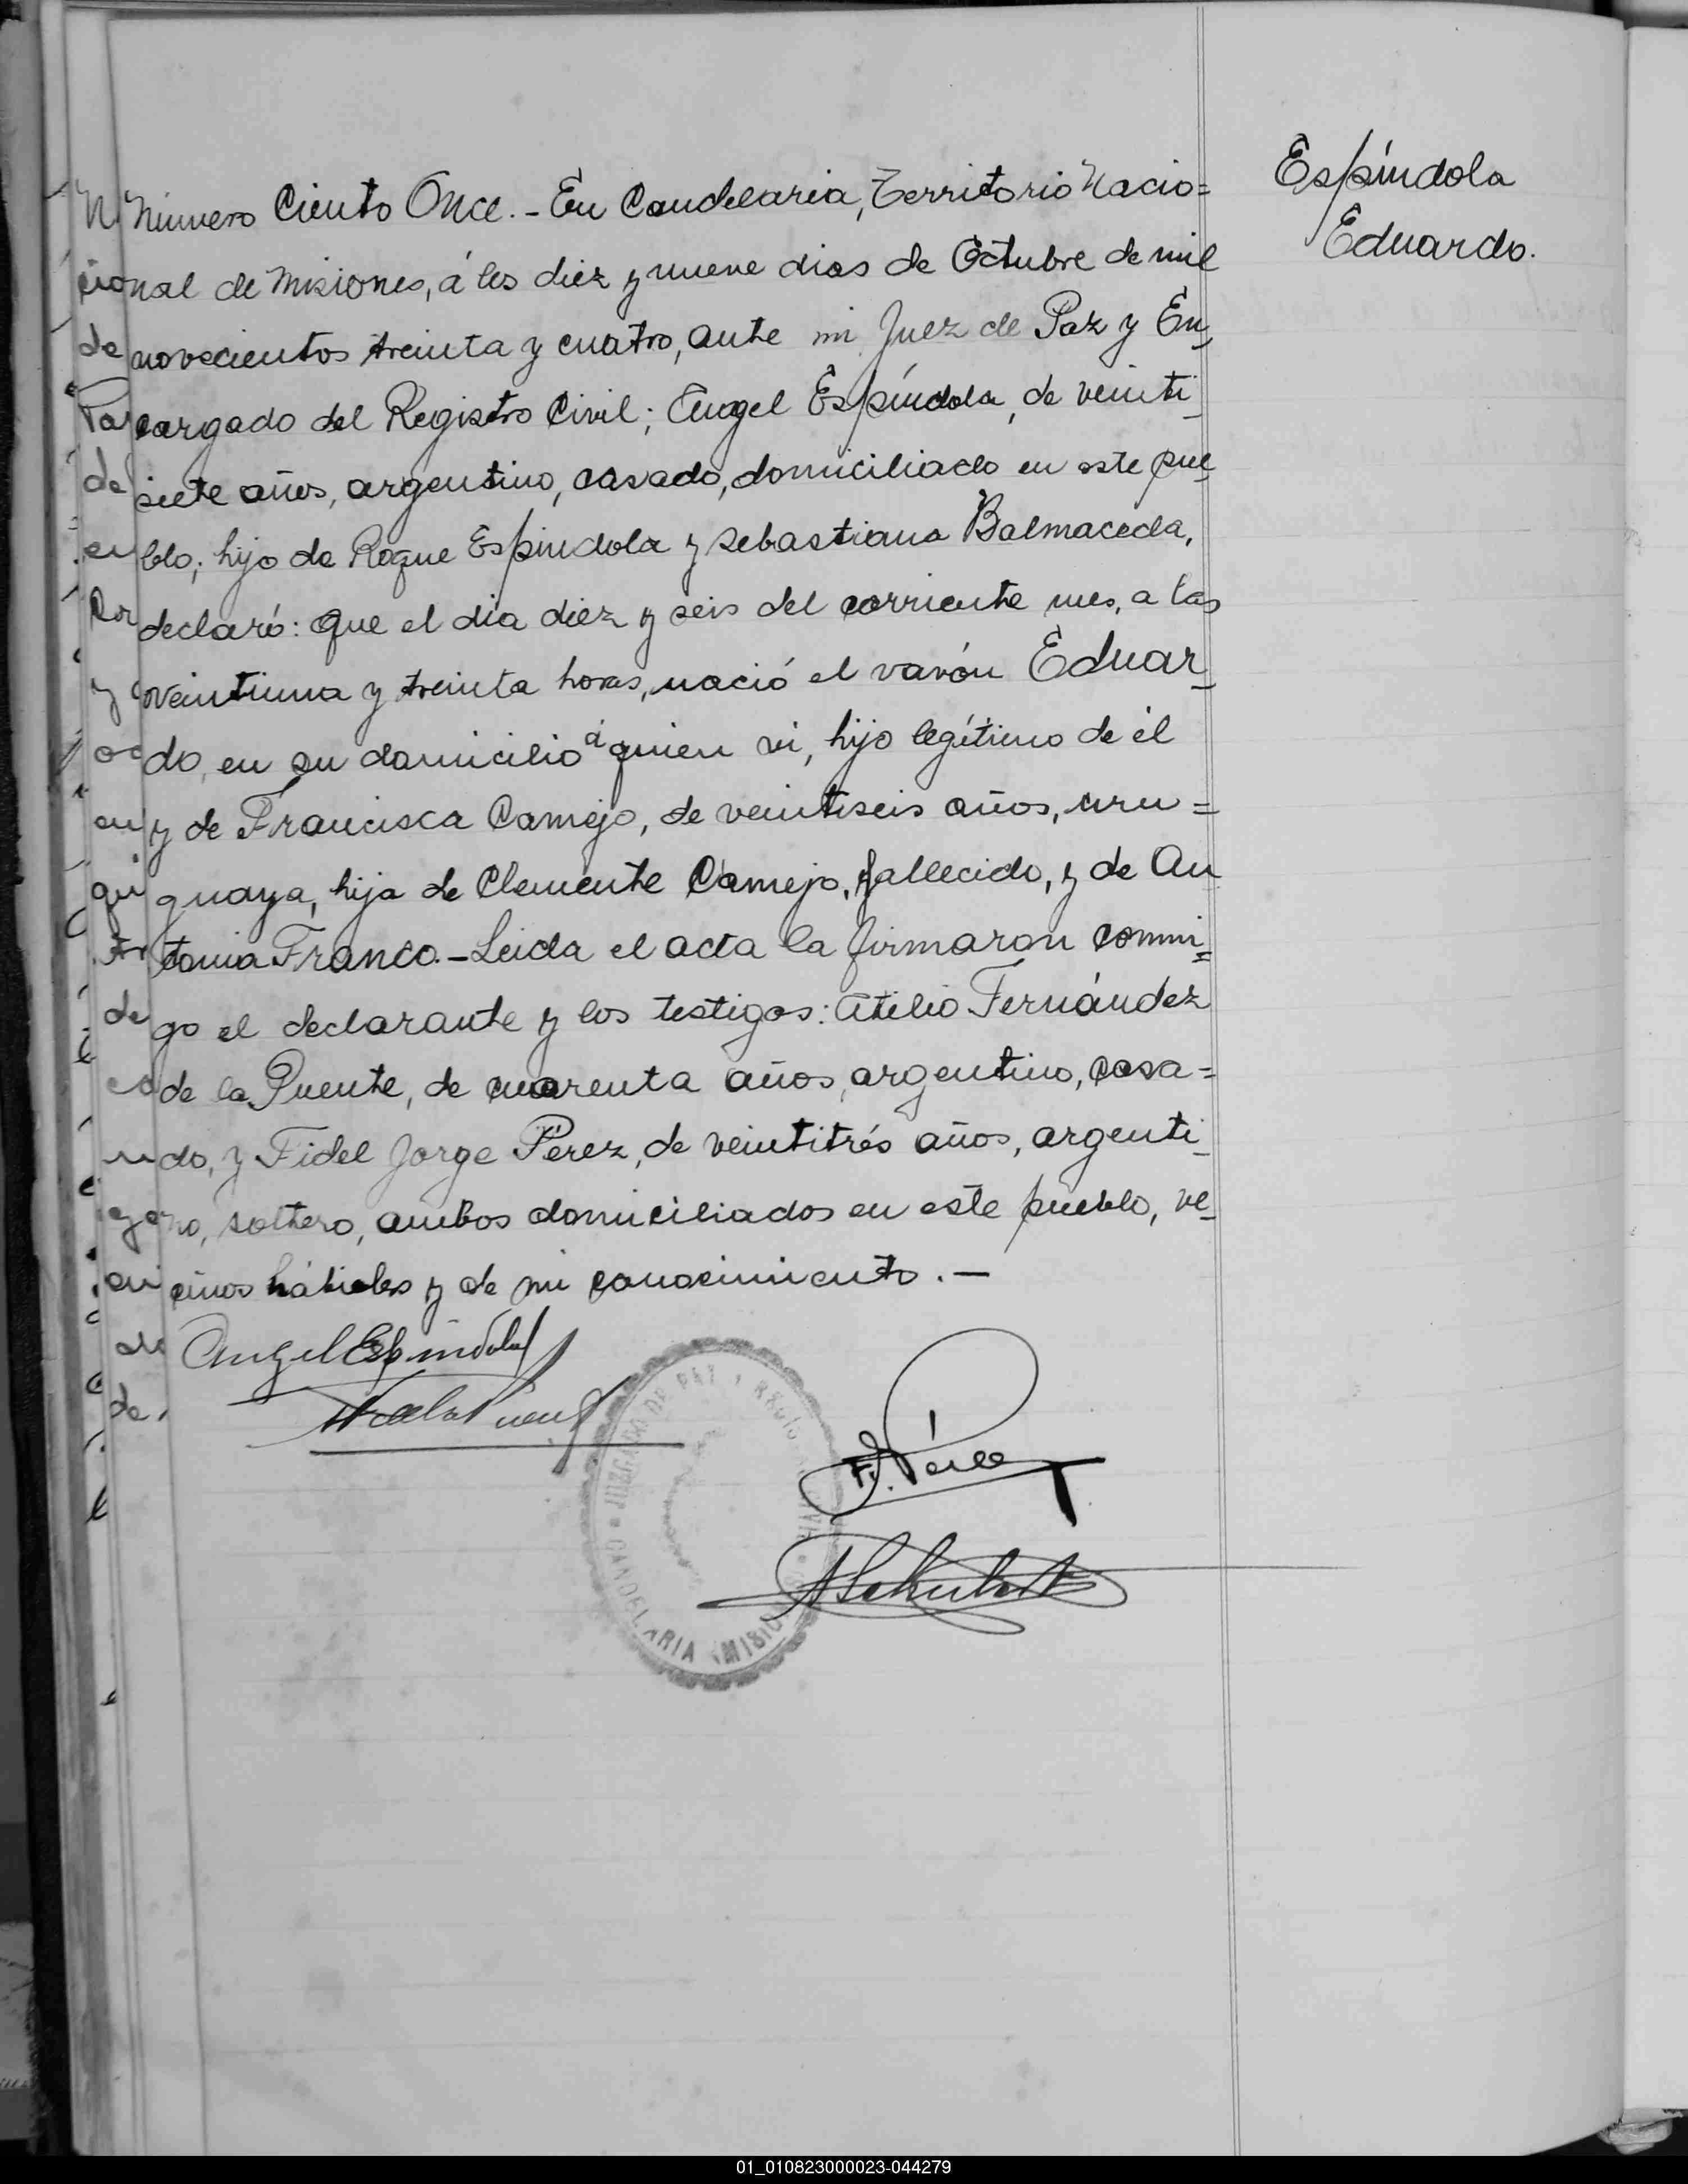 Espíndola
Eduardo.
Número Ciento Once.- En Candelaria, Territorio Nacio=
nal de Misiones, á los diez y nueve dias de Octubre de mil
novecientos treinta y cuatro, ante mi Juez de Paz y En-
cargado del Registro Civil; Angel Espíndola, de veinti-
siete años, argentino, casado, domiciliado en este pue-
blo; hijo de Roque Espindola y Sebastiana Balmaceda,
declaró: Que el dia diez y seis del corriente mes, a las
veintiuna y treinta horas, nació el varón Eduar-
do, en su domicilio á quien vi, hijo legítimo de él
y de Francisca Camejo, de veintiseis años, uru=
guaya, hija de Clemente Camejo, fallecido, y de An
tonia Franco.- Leida el acta la firmaron conmi=
go el declarante y los testigos: Atilio Fernández
de la Puente, de cuarenta años, argentino, casa=
do, y Fidel Jorge Pérez, de veintitrés años, argenti-
no, soltero, ambos domiciliados en este pueblo, ve-
cinos hábiles y de mi conocimiento.-
Angel Espindola
F. Pérez
JUZGADO DE PAZ Y
CANDELARIA
01_010823000023-044279